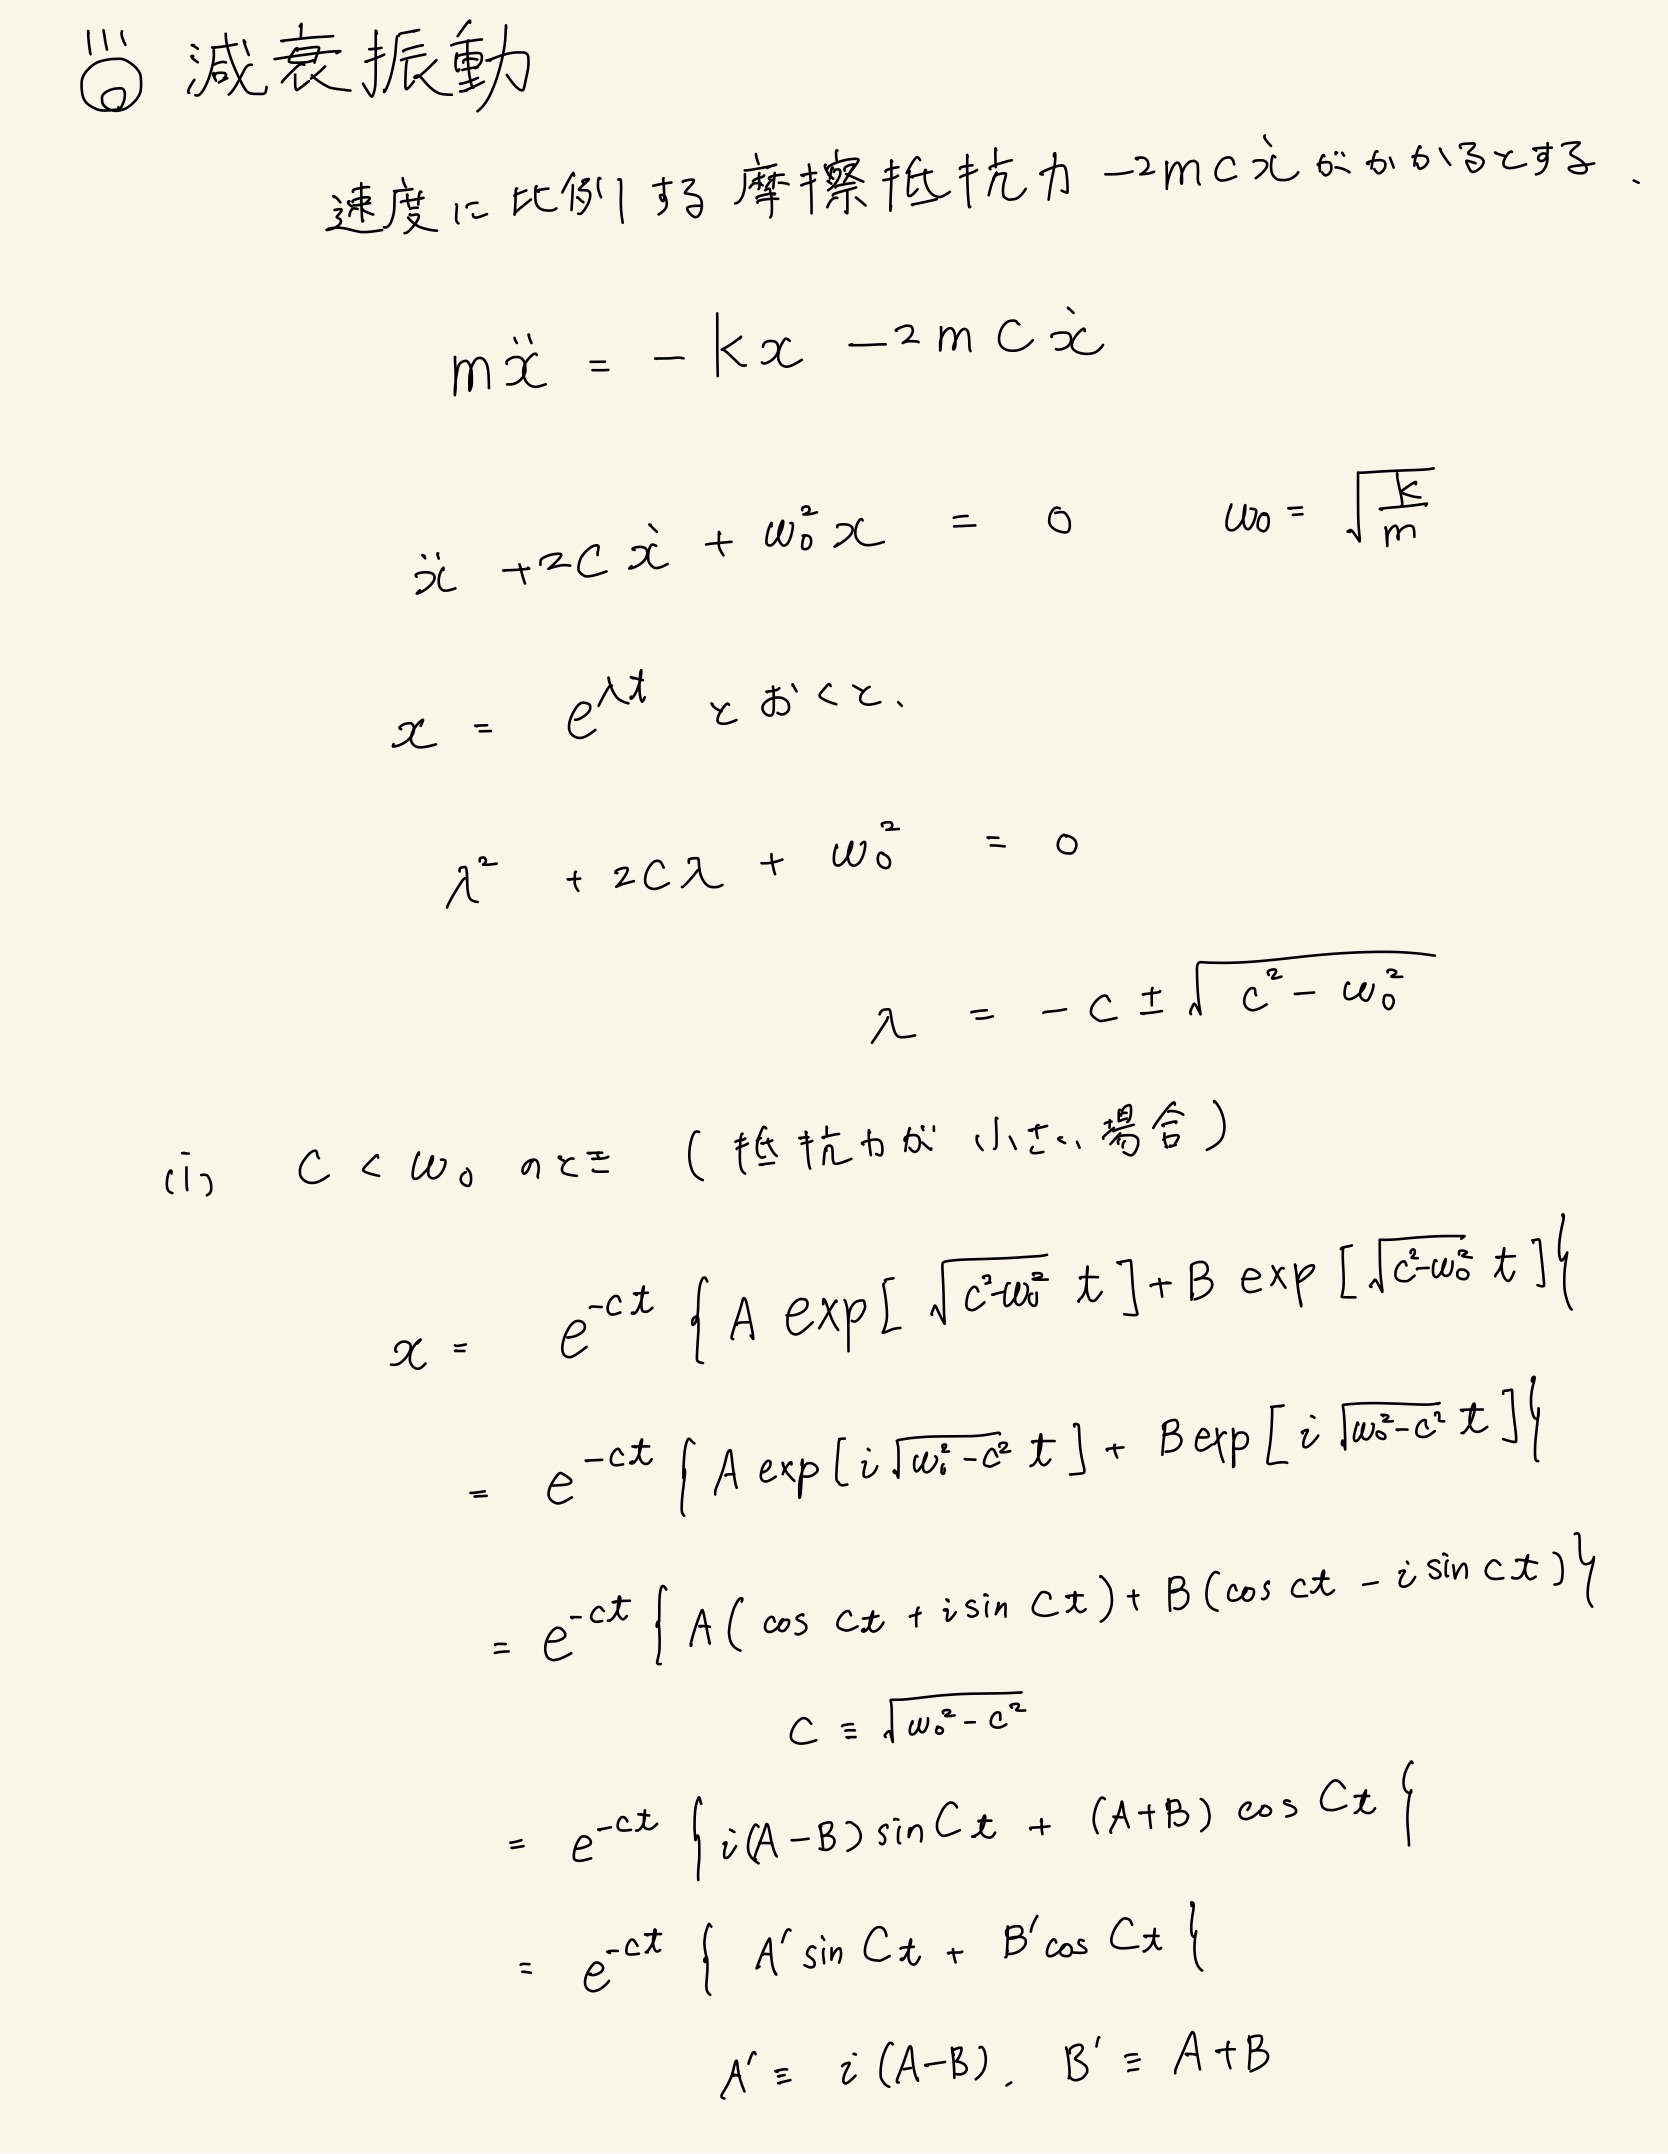 減衰振動
速度に比例する摩擦抵抗力 −2mcẋ がかかるとする.
mẍ = −kx −2mcẋ
ẍ +2cẋ + ω₀²x = 0 ω₀ = √(k/m)
x = e^{λt} とおくと、
λ² + 2cλ + ω₀² = 0
λ = −c ± √(c² − ω₀²)
(i) c < ω₀ のとき (抵抗力が小さい場合)
x = e^{−ct} { A exp[ √(c²−ω₀²) t ] + B exp [ √(c²−ω₀²) t ] }
= e^{−ct} { A exp [ i √(ω₀²−c²) t ] + B exp [ i √(ω₀²−c²) t ] }
= e^{−ct} { A( cos Ct + i sin Ct ) + B (cos Ct − i sin Ct ) }
C ≡ √(ω₀² − c²)
= e^{−ct} { i(A−B) sin Ct + (A+B) cos Ct }
= e^{−ct} { A′ sin Ct + B′ cos Ct }
A′ ≡ i (A−B). B′ ≡ A+B